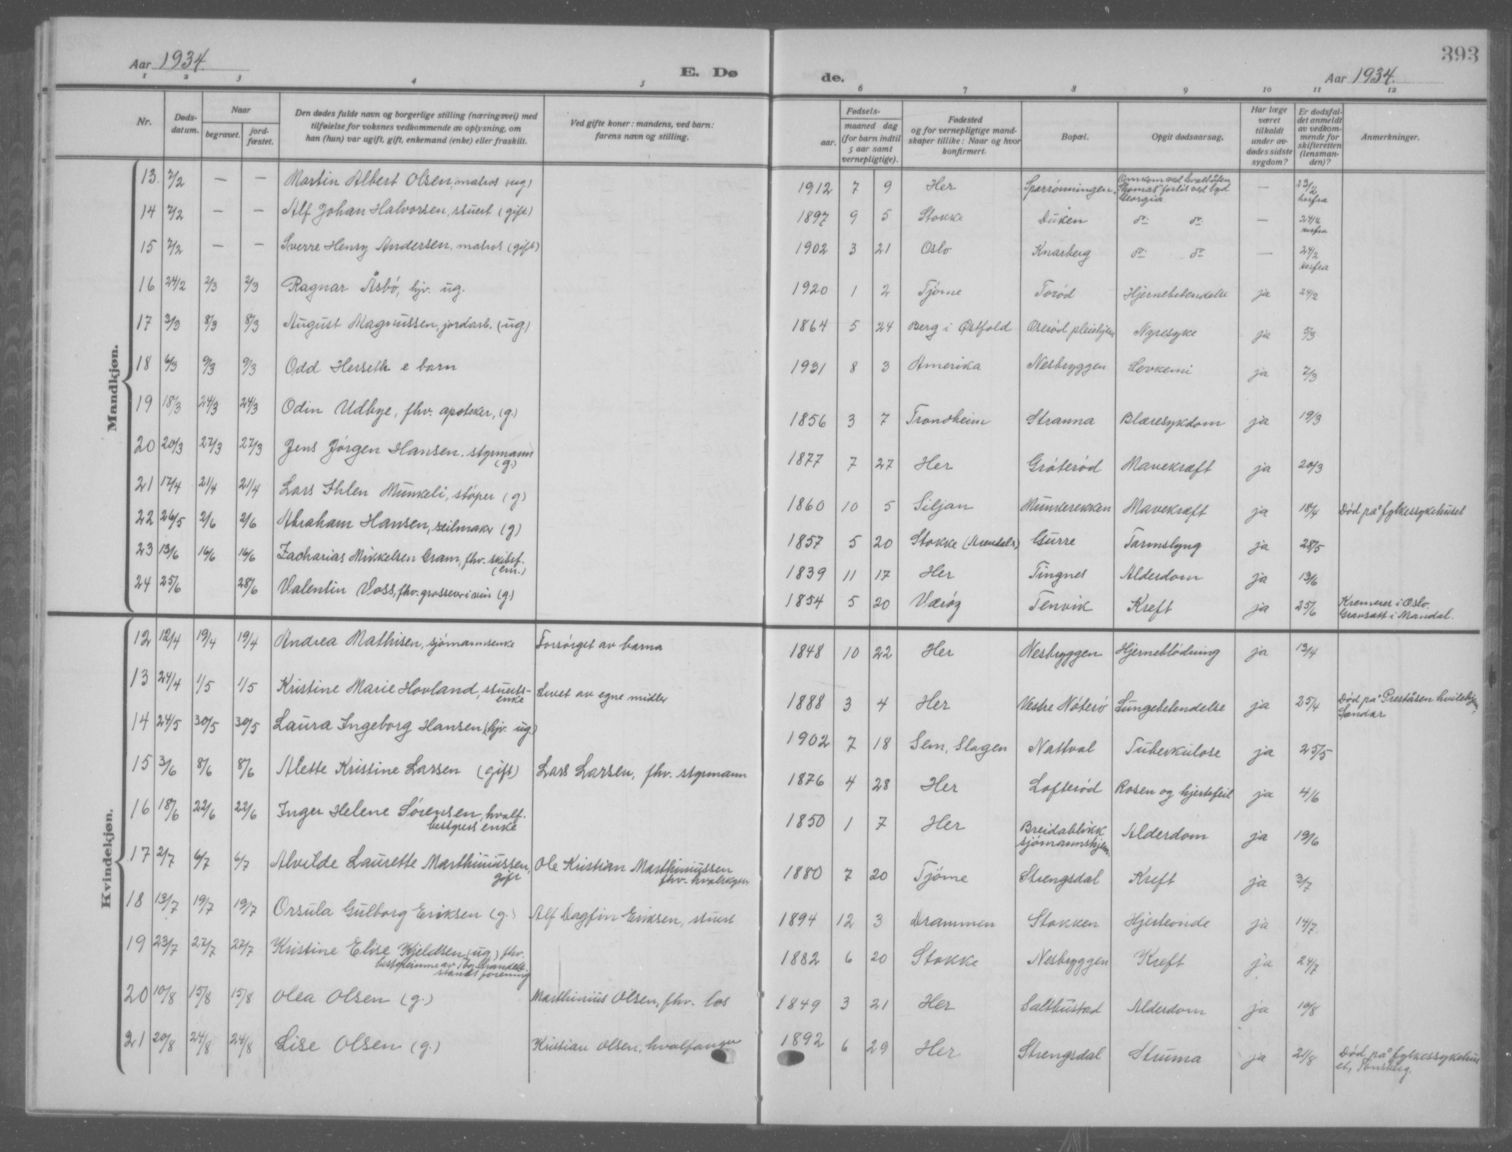 Aar 1934.
E. Dø
de.
Aar 1934.
393
1 2 3 4 5 6 7 8 9 10 11 12
Nr.
Døds-
datum.
Naar
begravet.
jord-
fæstet.
Den dødes fulde navn og borgerlige stilling (næringsvei) med
tilføielse for voksnes vedkommende av oplysning, om
han (hun) var ugift, gift, enkemand (enke) eller fraskilt.
Ved gifte koner: mandens, ved barn:
farens navn og stilling.
Fødsels-
aar.
maaned dag
(for barn indtil
5 aar samt
vernepligtige).
Fødested
og for vernepligtige mand-
skaper tillike: Naar og hvor
konfirmert.
Bopæl.
Opgit dødsaarsag.
Har læge
været
tilkaldt
under av-
dødes sidste
sygdom?
Er dødsfal-
det anmeldt
av vedkom-
mende for
skifteretten
(lensman-
den)?
Anmerkninger.
Mandkjøn.
13 2/2 — — Martin Albert Olsen, matros (ug) 1912 7 9 Her Omkom ved hvalbåten Thomas' forlis ved Syd Georgia —
14 2/2 — — Alf Johan Halvorsen, stuert (gift) 1897 9 5 Stokke Duken do do — 24/2
15 2/2 — — Sverre Henry Andersen, matros (gift) 1902 3 21 Oslo Knarberg do do — 24/2
16 24/2 2/3 2/3 Ragnar Åsbø, hjv. ug. 1920 1 2 Tjøme Torød Hjernebetendelse ja 24/2
17 3/3 8/3 8/3 August Magnussen, jordarb. (ug) 1864 5 24 Berg i Østfold Oserød pleiehjem Nyresyke ja 5/3
18 6/3 9/3 9/3 Odd Herseth e barn 1931 8 3 Amerika Nesbryggen Levkemi ja 7/3
19 18/3 24/3 24/3 Odin Udbye, fhv. apoteker, (g) 1856 3 7 Trondheim Stranna Blæresykdom ja 19/3
20 20/3 27/3 27/3 Jens Jørgen Hansen, styrmann (g) 1877 7 27 Her Grøterød Mavekræft ja 20/3
21 17/4 21/4 21/4 Lars Ihlen Munkeli, støper (g) 1860 10 5 Siljan Munkerekken Mavekræft ja 18/4 Død på fylkessykehuset
22 26/5 2/6 2/6 Abraham Hansen, seilmaker (g) 1857 5 20 Stokke (Arendals) Gurre Tarmslyng ja 28/5
23 13/6 16/6 16/6 Zacharias Mikkelsen Gram, fhv. skibsf. (em.) 1839 11 17 Her Tingnes Alderdom ja 13/6
24 25/6 28/6 Valentin Voss, fhv. grosserer i vin (g) 1854 5 20 Værøy Tenvik Kreft ja 25/6 Kremeres i Oslo. Gravsatt i Mandal.
Kvindekjøn.
12 12/4 19/4 19/4 Andrea Mathisen, sjømannsenke Forsørget av barna 1848 10 22 Her Nesbryggen Hjerneblødning ja 13/4
13 24/4 1/5 1/5 Kristine Marie Hovland, stuerts-enke Levet av egne midler 1888 3 4 Her Vestre Nøterø Lungebetendelse ja 25/4 Død på Preståsen hvilehjem, Sandar
14 24/5 30/5 30/5 Laura Ingeborg Hansen (hjv. ug) 1902 7 18 Sem, Slagen Nattval Tuberkulose ja 25/5
15 3/6 8/6 8/6 Alette Kristine Larsen (gift) Lars Larsen, fhv. styrmann 1876 4 28 Her Lofterød Rosen og hjertefeil ja 4/6
16 18/6 22/6 22/6 Inger Helene Sørensen, hvalf. bestyrers enke 1850 1 7 Her Breidablikk sjømannshjem Alderdom ja 19/6
17 2/7 6/7 6/7 Alvilde Laurette Marthiniussen, gift Ole Kristian Marthiniussen fhv. 1880 7 20 Tjøme Strengsdal Kreft ja 3/7
18 13/7 19/7 19/7 Orsula Gulborg Eriksen (g.) Alf Dagfin Eriksen, stuert 1894 12 3 Drammen Stokken Hjerteonde ja 14/7
19 23/7 27/7 27/7 Kristine Elise Kjeldsen (ug) fhv. bestyrerinne av Tbg Handels-stands forening 1882 6 20 Stokke Nesbryggen Kreft ja 24/7
20 10/8 15/8 15/8 Olea Olsen (g.) Marthinius Olsen, fhv. los 1849 3 21 Her Salthustad Alderdom ja 10/8
21 20/8 24/8 24/8 Lise Olsen (g.) Kristian Olsen, hvalfanger 1892 6 29 Her Strengsdal Struma ja 21/8 Død på fylkessykehuset, Tønsberg.